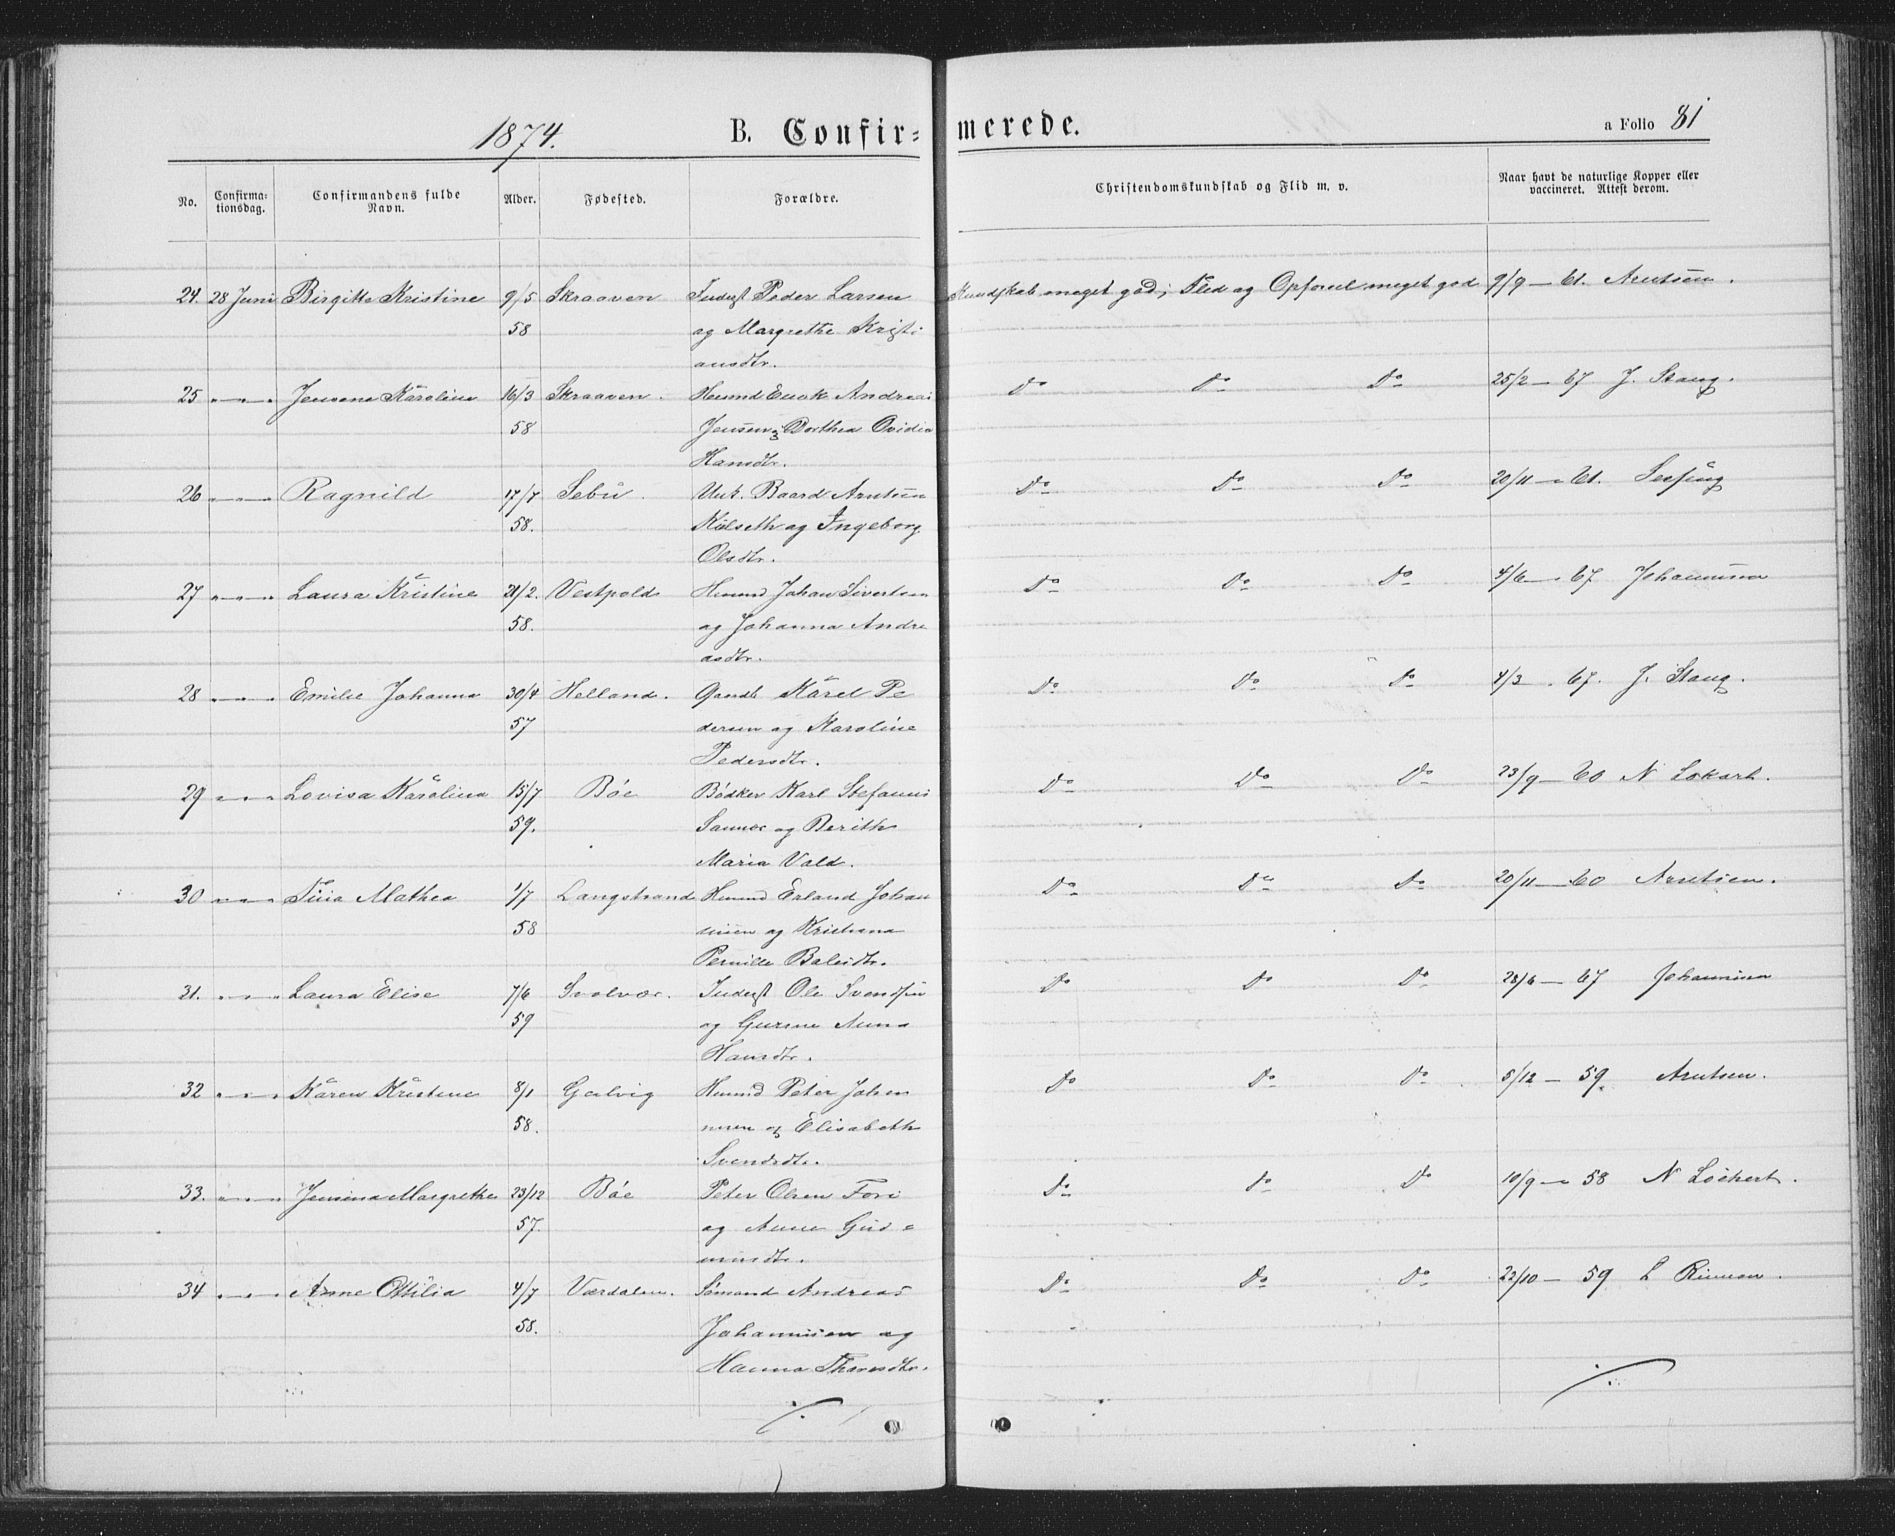 1874. B. Confir= merede. a Folio 81
No. Confirma=tionsdag. Confirmandens fulde Navn. Alder. Fødested. Forældre. Christendomskundskab og Flid m. v. Naar havt de naturlige Kopper eller vaccineret. Attest derom.
24. 28 Juni Birgitte Kristine 9/5 Skraaven Inderst Peder Larsen Kundskab meget god; Flid og Opførsel meget god 9/9 — 61. Arntsen.
58 og Margrethe Kristi
ansdtr.
25 " — " — " Jensena Karolina 16/3 Skraaven. Huusmd Enok Andreas Do Do Do 25/2 — 67 J. Stang.
58 Jensen og Dorthea Ovidia
Hansdtr.
26 " — " — " Ragnild 17/7 Sebu. Unk. Baard Arntsen Do Do Do 20/11 — 61.
58. Kulseth og Ingeborg
Olsdtr.
27 " — " — " Laura Kristine 21/2. Vestpold Huusmd Johan Sivertsen Do Do Do 4/6 — 67 Johannesen
58. og Johanna Andre
asdtr.
28 " — " — " Emilie Johanna 30/4 Helland. Gaardb Karel Pe Do Do Do 4/3 . 67. J. Stang.
57 dersen og Karoline
Pedersdtr.
29 " — " — " Lovisa Karolina 15/7 Bøe Bødker Karl Stefanus Do Do Do 23/9 — 60 N Lokert.
59. Sannes og Berith
Maria Vald.
30 " — " — " Tina Mathea 1/7 Langstrand Huusmd Erland Johan Do Do Do 20/11 — 60 Arntsen.
58 nesen og Kristiana
Pernille
31. " — " — " Laura Elise 7/6 Svolvær. Inderst Ole Svendsen Do Do Do 28/6 — 67 Johannesen
59 og Gurine Anna
Hansdtr.
32 " — " — " Karen Kristine 8/1 Galvig Huusmd Peter Johan Do Do Do 5/12 — 59 Arntsen.
58. nesen og Elisabeth
Svendsdtr.
33. " — " — " Jensina Margrethe 23/12 Bøe Peter Olsen Fore Do Do Do 10/9 — 58 N Lochert.
57. og Anne Gud=
mundtr.
34 " — " — " Anne Ottilia 4/7 Værdalen. Sømand Andreas Do Do Do 22/10 — 59
58. Johannesen og
Hanna Thoresdtr.